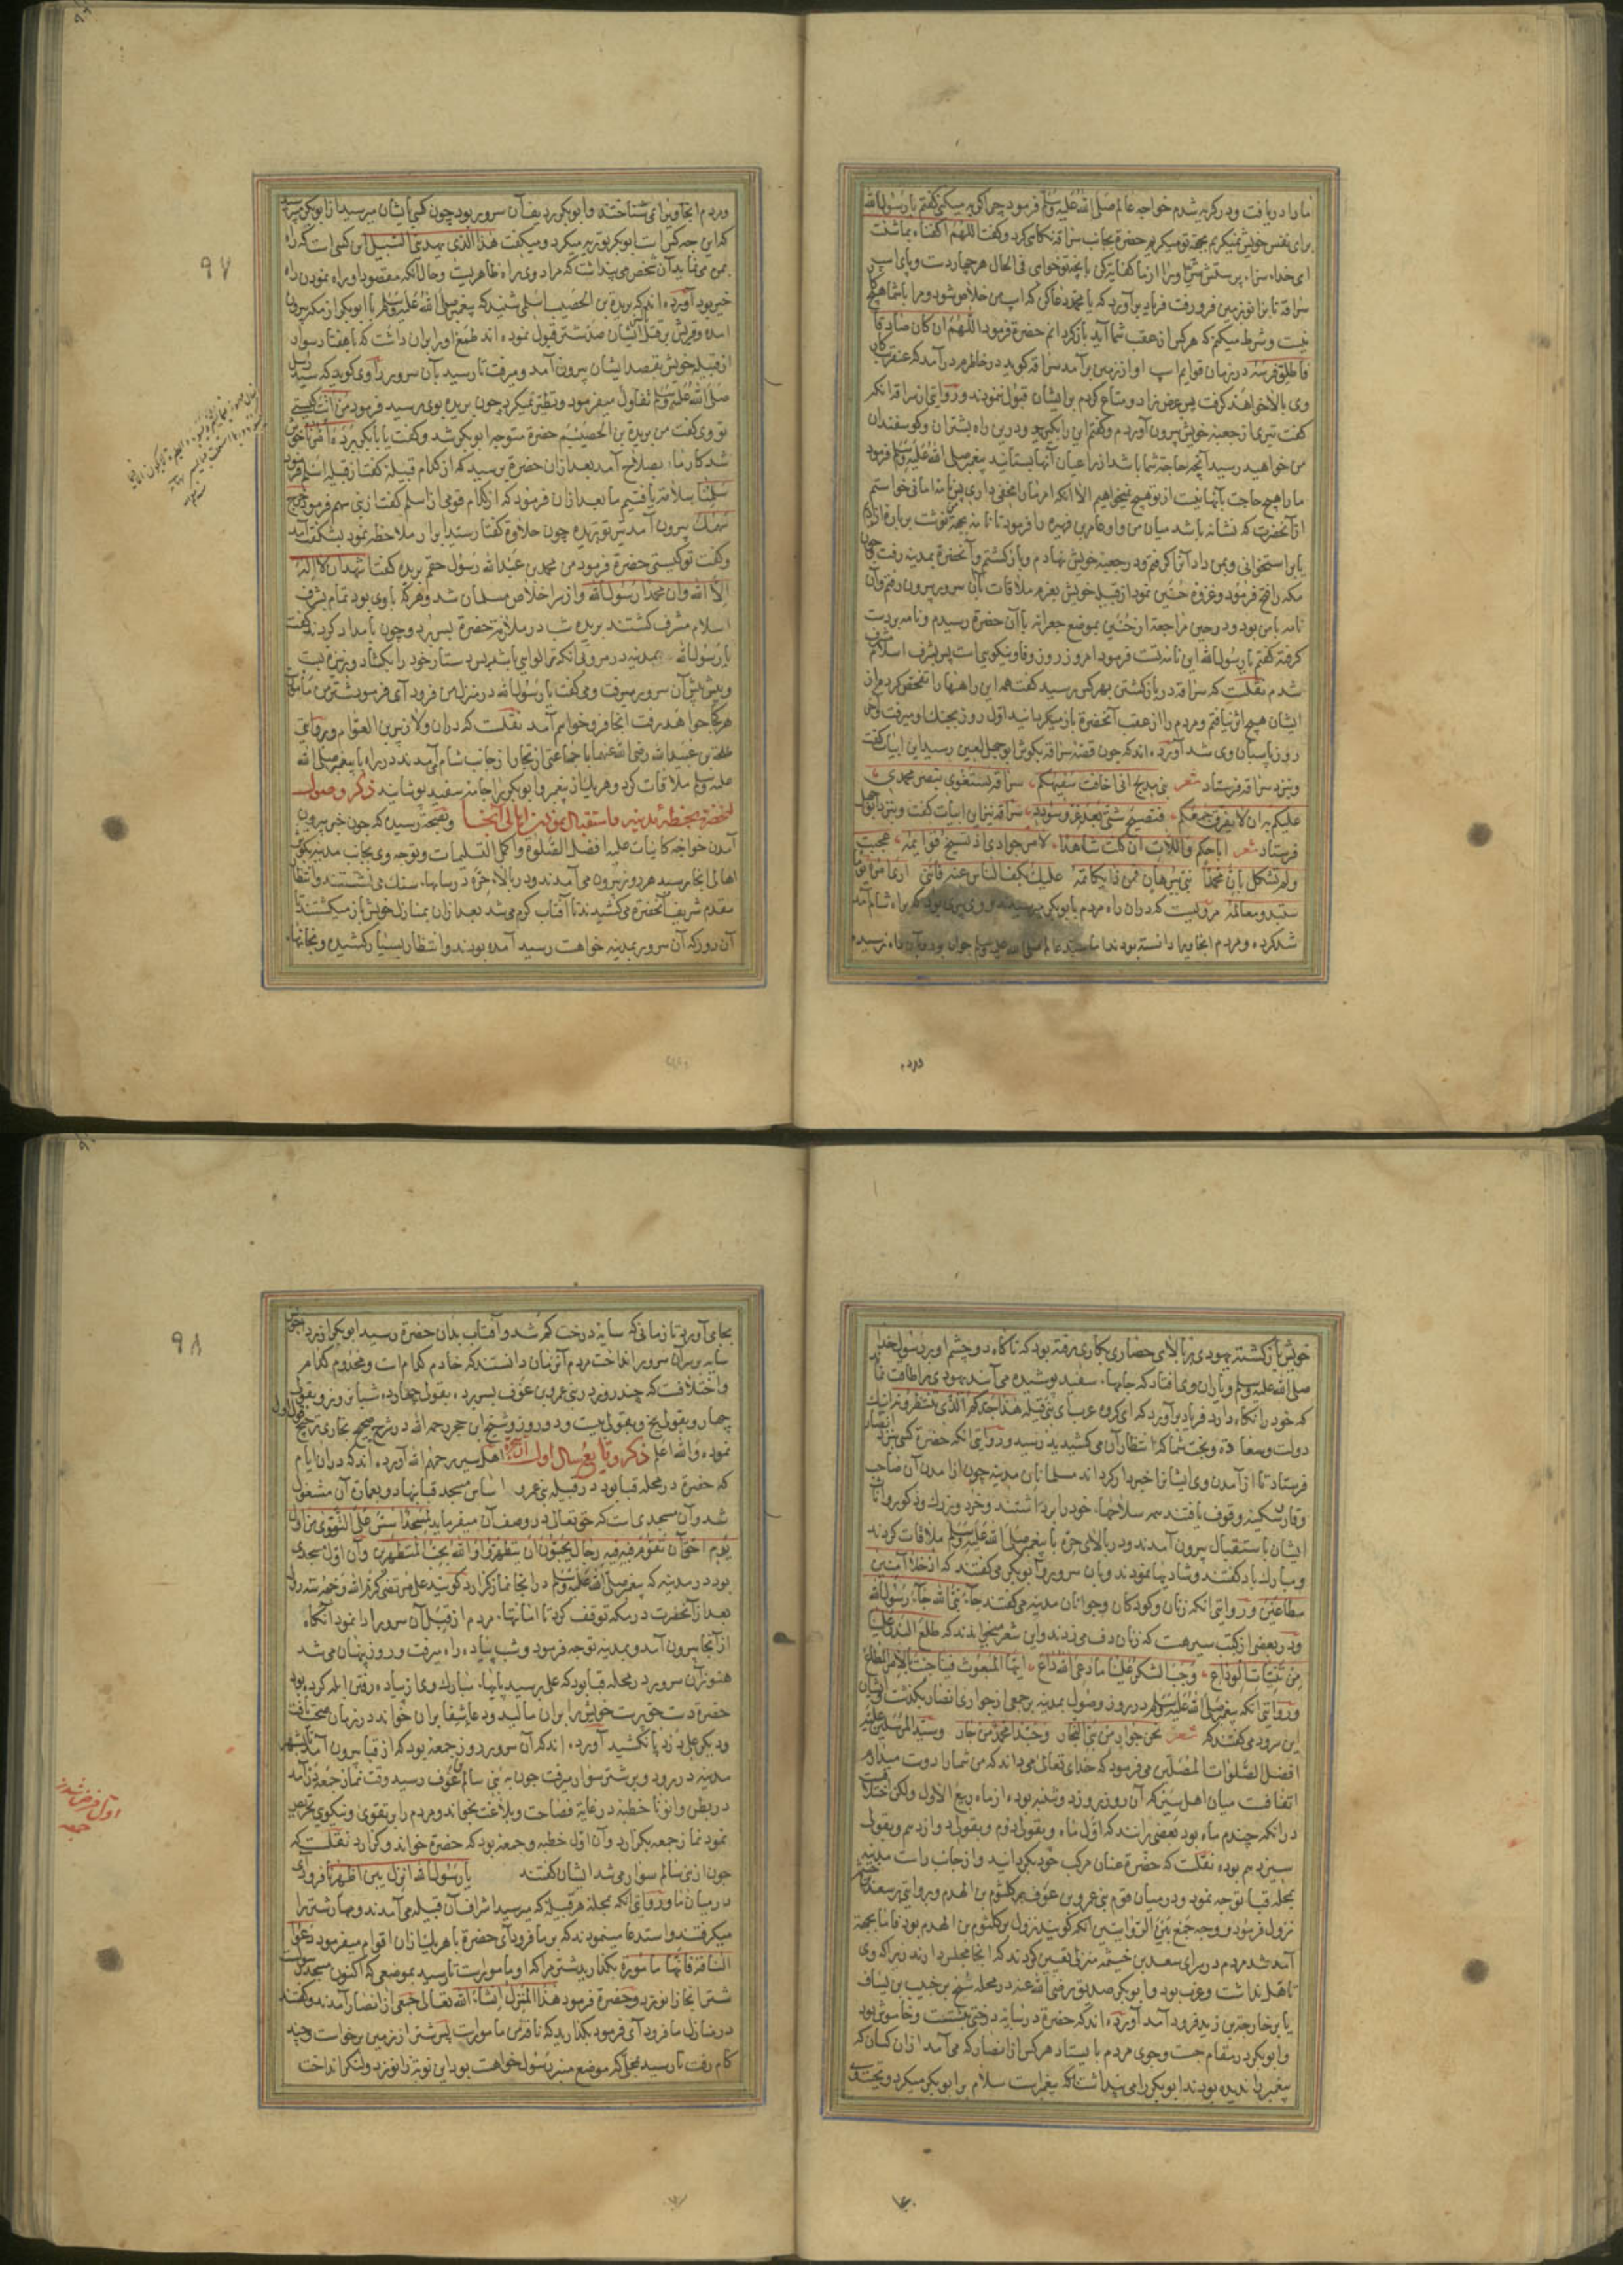 ما را دریافت و در گریه شدم خواجه عالم صلی الله علیه وسلم فرمود چرا گریه میکنی گفتم یا رسول الله
برای نفس خویش نمیگریم بجهة تو میگریم حضرة بجانب سراقه نگاهی کرد و گفت اللهم اکفناه بما شئت
سراقه تا بزانو بزمین فرو رفت فریاد برآورد که یا محمد دعا کن که اسپ من خلاص شود و مرا با شما هیچ
نیست و شرط میکنم که هر کس از عقب شما آید بازگردانم حضرة فرمود اللهم ان کان صادقا
فاطلق فرسه در زمان قوایم اسپ او از زمین برآمد سراقه گوید در خاطرم درآمد که عنقریب کار
وی بالا خواهد گرفت پس عرض زاد و متاع کردم بر ایشان قبول ننمودند و روایتی از سراقه انکه
گفت تیری از جعبه خویش بیرون آوردم و گفتم این را بگیرید و درین راه بشتران و گوسفندان
من خواهید رسید آنچه حاجة شما باشد از راعیان آنها بستانید پیغمبر صلی الله علیه وسلم فرمود
ما را هیچ حاجت بآنها نیست از تو هیچ نمیخواهیم الا انکه امر ما را مخفی داری پس نامه امانی خواستم
یا بر استخوانی و بمن داد آنرا گرفتم و در جعبه خویش نهادم و بازگشتم و آنحضرة بمدینه رفت چون
مکه را فتح فرمود و غزوه حنین نمود از قبیله خویش بعزم ملاقات آن سرور بیرون رفتم و آن
نامه با من بود و در حین مراجعة از حنین بموضع جعرانه بآن حضرة رسیدم و نامه بردست
گرفته گفتم یا رسول الله این نامه تست فرمود امروز روز وفا و نیکویی است پس بشرف اسلام مشرف
شدم نقلست که سراقه در بازگشتن بهر کس رسید گفت همه این راهها را تفحص کردم از
ایشان هیچ اثر نیافتم و مردم را از عقب آنحضرة باز میگردانید اول روز بجنك او میرفت و آخر
روز پاسبان وی شد آورده اند که چون قصه سراقه بگوش ابوجهل لعین رسید این ابیات گفت
و بنزد سراقه فرستاد شعر بنی مدلج انی اخاف سفیهکم سراقة یستغوی بنصر محمد
علیکم به ان لا یفرق جمعکم فتصبح شتی بعد عز وسودد سراقه نیز این ابیات گفت و بنزد ابوجهل
فرستاد شعر اباحکم واللات ان کنت شاهدا لامر جوادی اذ تسیخ قوایمه عجبت
ولم تشکل بان محمدا نبی ببرهان فمن ذا یکاتمه علیك بکف الناس عنه فاننی
مرویست که دران راه مردم با ابوبکر میرسیدند و وی پیری بود که براه شام آمد
شد کرده و مردم انجا ویرا دانسته بودند اما سید عالم صلی الله علیه وسلم جوان بود و بآن راه نرسیده
۹۷
و مردم انجا ویرا نمی شناختند و ابوبکر ردیف آن سرور بود چون کسی بایشان میرسید از ابوبکر میپرسید
که این چه کس است ابوبکر توریه میکرد و میگفت هذا الذی یهدینی السبیل این کسی است که راه
بمن می نماید آن شخص می پنداشت که مراد وی راه ظاهریست و حالانکه مقصود او راه نمودن راه
خیر بود آورده اند که بریدة بن الحصیب اسلمی شنید که پیغمبر صلی الله علیه وسلم با ابوبکر از مکه بیرون
آمده و قریش بر قتل ایشان صد شتر قبول نموده اند طمع او را بران داشت که با هفتاد سوار
از قبیله خویش بقصد ایشان بیرون آمد و میرفت تا رسید بآن سرور راوی گوید که سید رسل
صلی الله علیه وسلم تفاول میفرمود و تطیر نمیکرد چون بریده بوی رسید فرمود من انت کیستی
تو وی گفت من بریدة بن الحصیبم حضرة متوجه ابوبکر شد و گفت یا ابابکر برد امرنا خوش
شد کار ما و بصلاح آمد بعد ازان حضرة پرسید که از کدام قبیلة گفتا از قبیله اسلم فرمود
سلمنا سلامة یافتیم ما بعد ازان فرمود که از کدام قومی از اسلم گفت از بنی سهم فرمود خرج
سهمك بیرون آمد تیر تو بریده چون حلاوة گفتار سید ابرار ملاحظه نمود بشگفت آمد
و گفت تو کیستی حضرة فرمود من محمد بن عبد الله رسول حقم بریده گفت اشهد ان لا اله
الا الله وان محمدا رسول الله و از سر اخلاص مسلمان شد و هرکه با وی بود تمام بشرف
اسلام مشرف گشتند بریده شب در ملازمة حضرة بسر برد و چون بامداد کردند گفت
یا رسول الله بمدینه در مرو بی انکه ترا لوایی باشد پس دستار خود را بگشاد و بر نیزه بست
و پیش پیش آن سرور میرفت و می گفت یا رسول الله در منزل من فرود آی فرمود شتر من مأمورست
هرکجا خواهد رفت انجا فرو خواهم آمد نقلست که دران ولا زبیر بن العوام و بروایتی
طلحة بن عبید الله رضی الله عنهما با جماعتی از تجار از جانب شام می آمدند در راه با پیغمبر صلی الله
علیه وسلم ملاقات کرد و هر یك از پیغمبر و ابوبکر را جامه سفید پوشانید ذکر وصول
آنحضرة بخطه مدینه و استقبال نمودن اهالی آنجا و بصحة رسیده که چون خبر بیرون
آمدن خواجه کائنات علیه افضل الصلوة واکمل التسلیمات و توجه وی بجانب مدینه بگوش
اهالی انجا رسید هر روز بیرون می آمدند و در بالای حره در سایها سنك می نشستند و انتظار
مقدم شریف آنحضرة می کشیدند تا آفتاب گرم می شد بعد ازان بمنازل خویش باز میگشتند تا
آن روز که آن سرور بمدینه خواهد رسید آمده بودند و انتظار بسیار کشیده و بخانها
خویش بازگشته یهودی بر بالای حصاری بکاری رفته بود که ناگاه دو چشم او بر رسول خدا
صلی الله علیه وسلم و یاران وی افتاد که جامها سفید پوشیده می آیند یهودی را طاقت نماند
که خود را نگاه دارد فریاد برآورد که ای گروه عرب ای بنی قیله هذا جدکم الذی تنتظرونه اینك
دولت و سعادة و بخت شما که انتظار آن می کشیدید رسید و روایتی انکه حضرة کسی بنزد انصار
فرستاد تا از آمدن وی ایشانرا خبردار گرداند مسلمانان مدینه چون از آمدن آن صاحب
وقار و سکینه وقوف یافتند همه سلاحها خود را برداشتند و خرد و بزرك و ذکور و اناث
ایشان باستقبال بیرون آمدند و در بالای حره با پیغمبر صلی الله علیه وسلم ملاقات کردند
و مبارك باد گفتند و شادیها نمودند و بآن سرور و ابوبکر می گفتند که ادخلا آمنین
مطاعین و روایتی انکه زنان و کودکان و جوانان مدینه می گفتند جاء نبی الله جاء رسول الله
و در بعضی از کتب سیر هست که زنان دف می زدند و این شعر میخواندند که طلع البدر علینا
من ثنیات الوداع وجب الشکر علینا ما دعی لله داع ایها المبعوث فینا جئت بالامر المطاع
و روایتی انکه پیغمبر صلی الله علیه وسلم در روز وصول بمدینه بر جمعی از جواری انصار بگذشت و ایشان
این سرود می گفتند که شعر نحن جوار من بنی النجار وحبذا محمد من جار و سید المرسلین علیه
افضل صلوات المصلین می فرمود که خدای تعالی می داند که من شما را دوست میدارم
اتفاقست میان اهل سیر که آن روز روز دوشنبه بوده از ماه ربیع الاول ولکن اختلافست
در انکه چندم ماه بود بعضی برانند که اول ماه و بقولی دوم و بقولی دوازدهم و بقولی
سیزدهم بوده نقلست که حضرة عنان مرکب خود بگردانید و از جانب راست مدینه
بمحله قبا توجه نمود و در میان قوم بنی عمرو بن عوف بر کلثوم بن الهدم و بروایتی بر سعد بن خیثمه
نزول فرمود و وجه جمع بین الروایتین انکه گویند نزول بر کلثوم بن الهدم بود فاما بجهة
آمد شد مردم در سرای سعد بن خیثمه منزلی تعیین کردند که انجا مجلس دارند زیرا که وی
تاهل نداشت و عزب بود و ابوبکر صدیق رضی الله عنه در محله سنح بر خبیب بن یساف
یا بر خارجة بن زید فرود آمد آورده اند که حضرة در سایه درختی بنشست و خاموش بود
و ابوبکر در مقام جست و جوی مردم بایستاد هر کس از انصار که می آمد ازان کسان که
پیغمبر را ندیده بودند ابوبکر را می پنداشت که پیغمبرست سلام بر ابوبکر میکرد و تحیت
۹۸
بجای می آورد تا زمانی که سایه درخت کم شد و آفتاب بدان حضرة رسید ابوبکر از برد خویش
سایه بر سر آن سرور انداخت مردم آن زمان دانستند که خادم کدام است و مخدوم کدام
و اختلافست که چند روز در بنی عمرو بن عوف بسر برده بقولی چهارده شبانروز و بقولی
چهار و بقولی پنج و بقولی بیست و دو روز و شیخ ابن حجر رحمه الله در شرح صحیح بخاری ترجیح قول اول
نموده والله اعلم ذکر وقایع سال اول از هجرة اهل سیر رحمهم الله آورده اند که دران ایام
که حضرة در محله قبا بود در قبیله بنی عمرو اساس مسجد قبا بنهاد و بعمارة آن مشغول
شد و آن مسجدی است که حق تعالی در وصف آن میفرماید لمسجد اسس علی التقوی من اول
یوم احق ان تقوم فیه فیه رجال یحبون ان یتطهروا والله یحب المتطهرین و آن اول مسجدی
بود در مدینه که پیغمبر صلی الله علیه وسلم در انجا نماز گزارد گویند علی مرتضی کرم الله وجهه سه روز
بعد از آنحضرت در مکه توقف کرد تا امانتهای مردم از قبل آن سرور ادا نمود آنگاه
از آنجا بیرون آمد و بمدینه توجه فرمود و شب پیاده راه میرفت و روز پنهان می شد
هنوز آن سرور در محله قبا بود که علی برسید پایهای مبارك وی از پیاده رفتن آبله کرده بود
حضرة دست حق پرست خویش را بران مالید و دعای شفا بران خواند در زمان صحت یافت
و دیگر علی درد پا نکشید آورده اند که آن سرور روز جمعه بود که از قبا بیرون آمد تا بشهر
مدینه در رود و بر شتر سوار میرفت چون به بنی سالم بن عوف رسید وقت نماز جمعه درآمد
در بطن وادی رانونا خطبه در غایة فصاحت و بلاغت بخواند و مردم را بر تقوی و نیکویی تحریص
نمود نماز جمعه بگزارد و آن اول خطبه و جمعه بود که حضرة خواند و گزارد نقلست که
چون از بنی سالم سوار می شد ایشان گفتند یا رسول الله انزل بین اظهرنا فرود آی
در میان ما و روایتی انکه بمحله هر قبیله که میرسید اشراف آن قبیله می آمدند و مهار شتر را
میگرفتند و استدعا مینمودند که بر ما فرود آی حضرة با هر یك ازان اقوام میفرمود دعوا
الناقة فانها مامورة بگذارید شتر مرا که او مامورست تا رسید بموضعی که اکنون مسجد
شتر انجا زانو زد و حضرة فرمود هذا المنزل ان شاء الله تعالی جمعی از انصار آمدند و گفتند
در منازل ما فرود آی فرمود بگذارید که ناقه من مامورست پس شتر از زمین برخاست و چند
گام رفت تا رسید بمحلی که موضع منبر رسول خواهد بود این نوبت زانو زد و لنگر انداخت
اول فرض شدن
جمعه